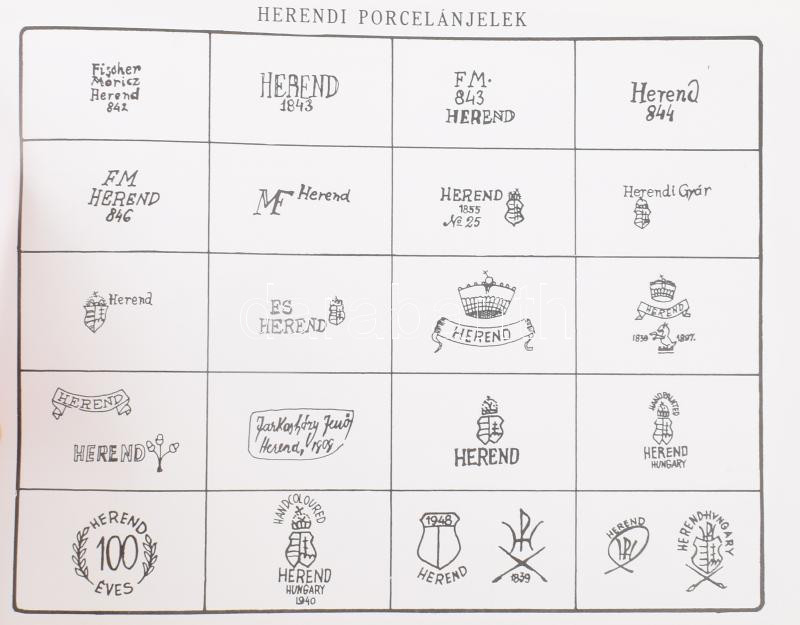 HERENDI PORCELÁNJELEK
Fischer
Móricz
Herend
842
HEREND
1843
FM.
843
HEREND
Herend
844
FM
HEREND
846
MF Herend
HEREND
1855
No 25
Herendi Gyár
Herend
ES
HEREND
HEREND
HEREND
1839 1897.
HEREND
HEREND
Farkasházy Jenő
Herend, 1909
HEREND
HANDPAINTED
HEREND
HUNGARY
HEREND
100
ÉVES
HANDCOLOURED
HEREND
HUNGARY
1940
1948
HEREND
1839
HEREND
HEREND-HUNGARY